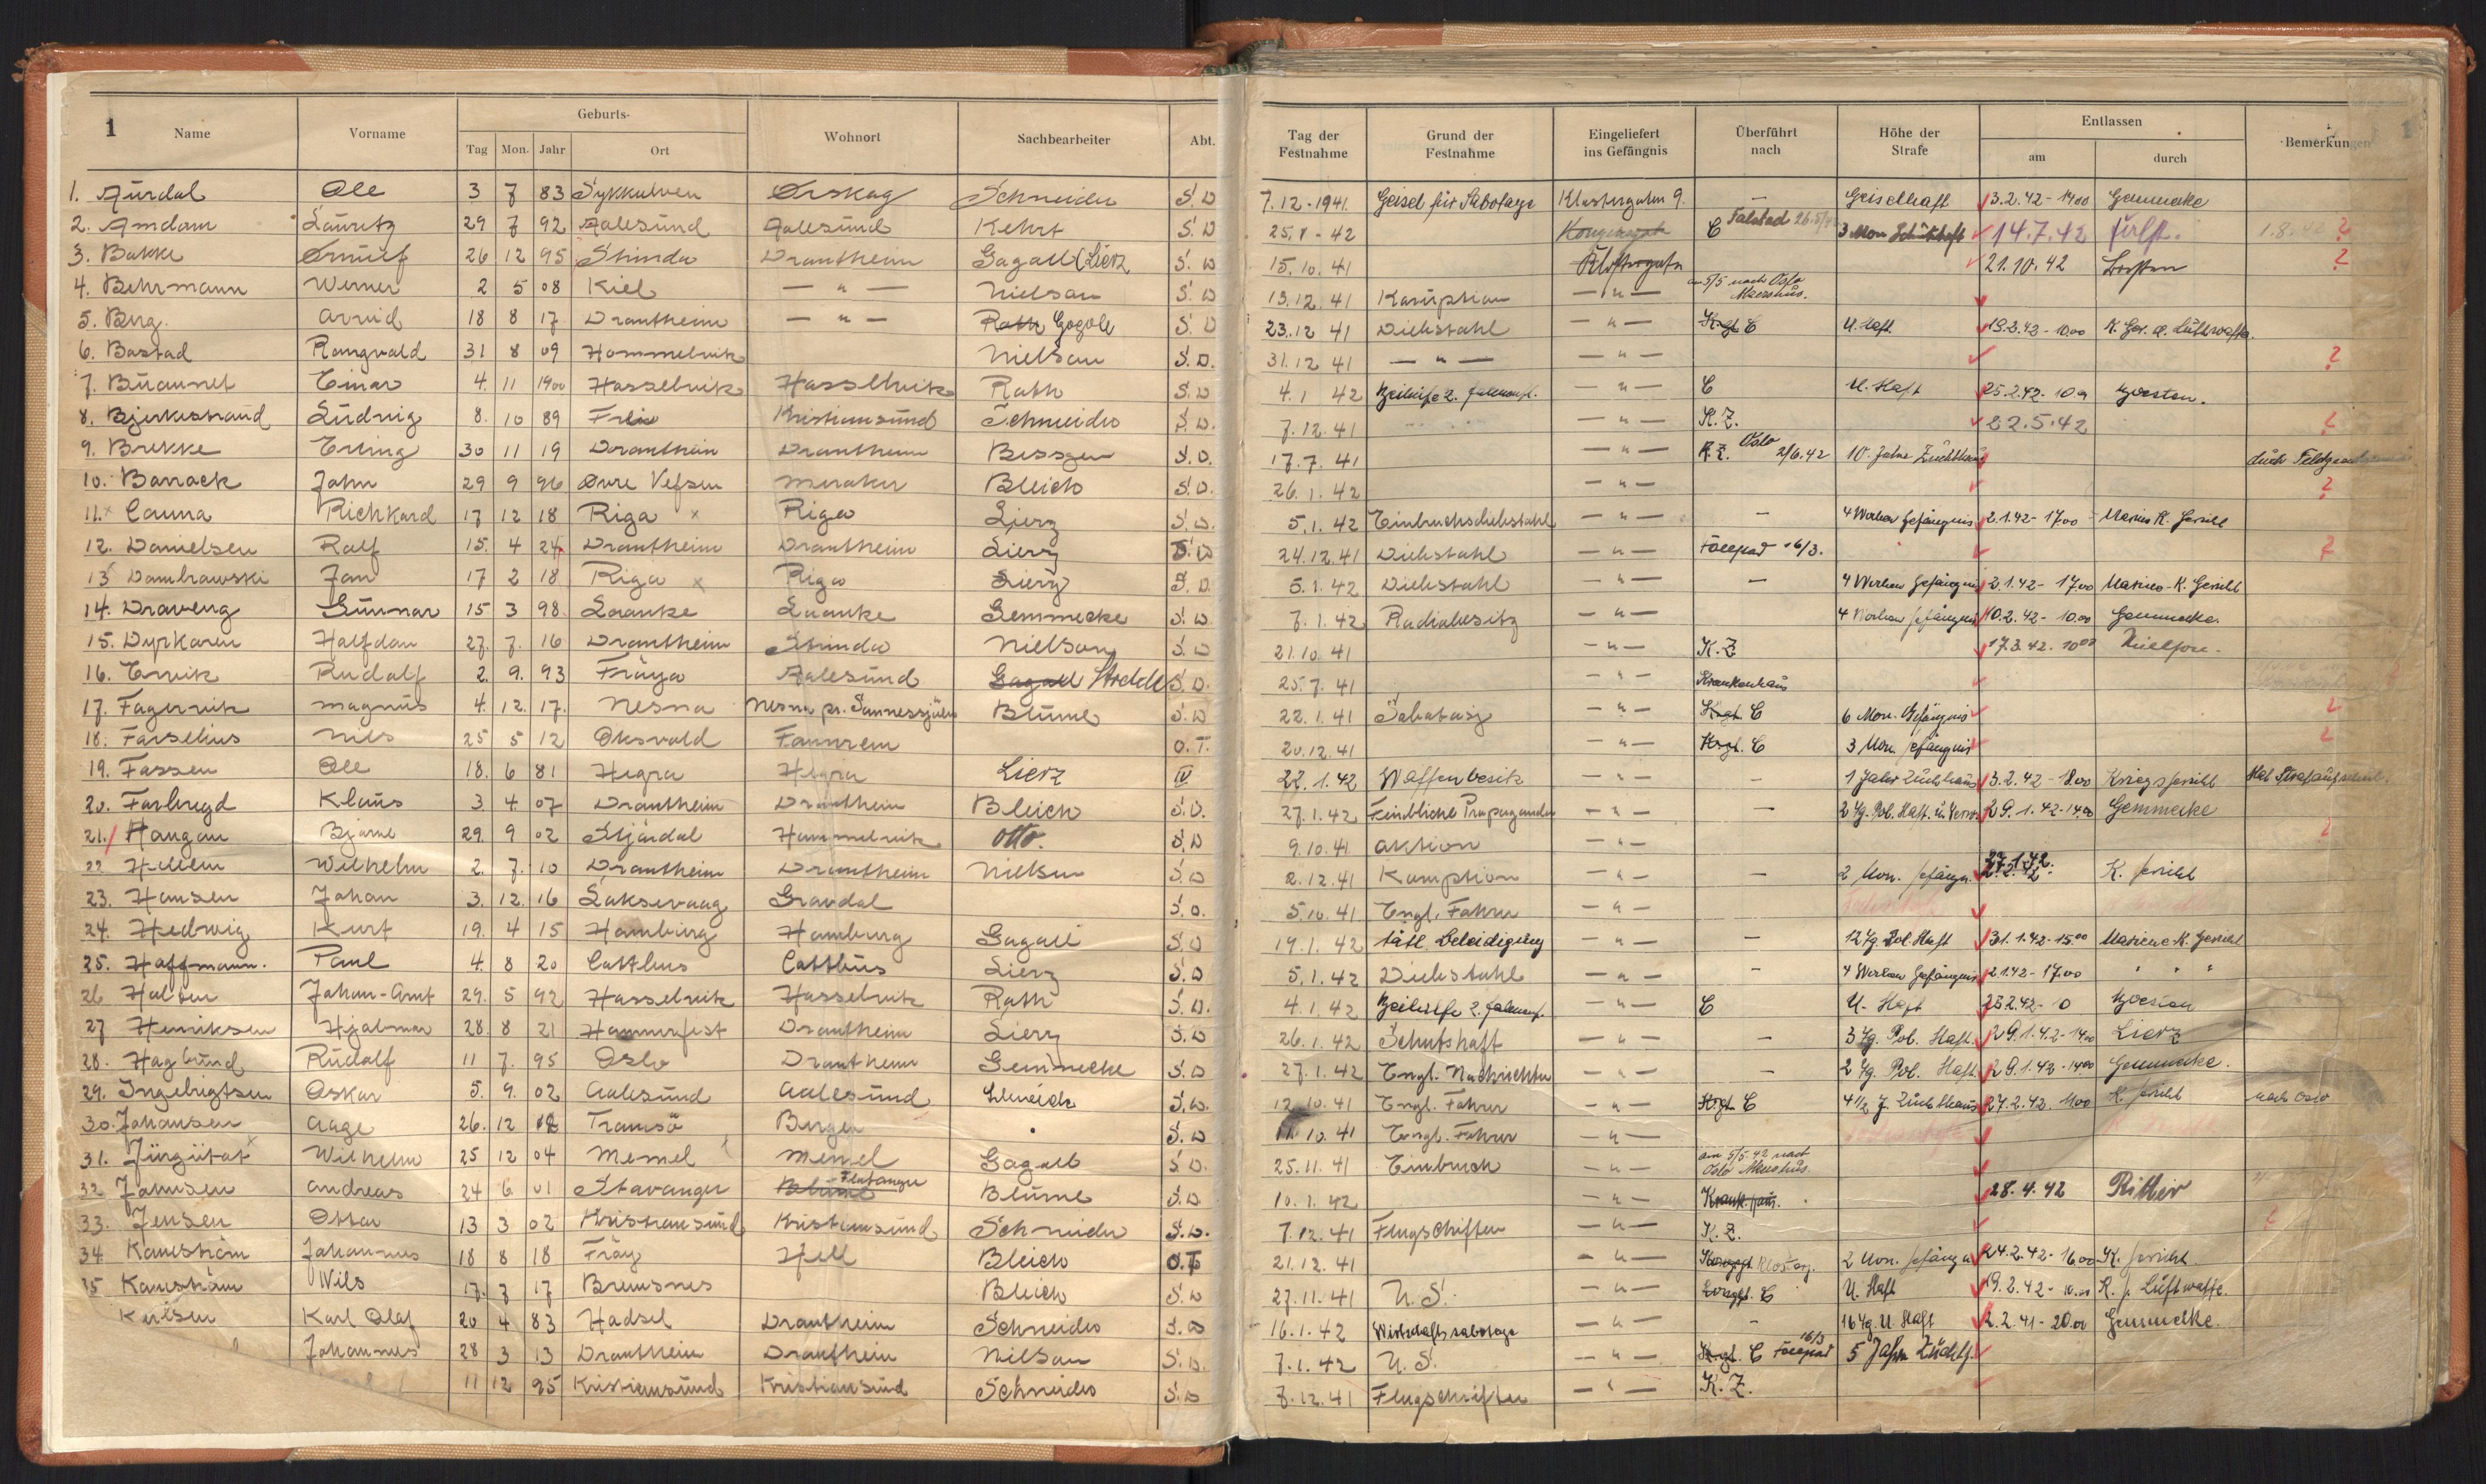 1 Name Vorname Geburts- Wohnort Sachbearbeiter Abt. Tag der Festnahme Grund der Festnahme Eingeliefert ins Gefängnis Überführt nach Höhe der Strafe Entlassen Bemerkungen 1
Tag Mon. Jahr Ort am durch
1. Aurdal Ole 3 7 83 Sykkulven Ørskog Schneider S.D 7.12-1941. Geisel für Sabotage Klostergaten 9. — Geiselhaft 13.2.42-1400 Gemmecke
2. Amdam Lauritz 29 7 92 Aalesund Aalesund Kehrt S.D 25.8-42 C Falstad 26.5 3 Mon Schutzhaft 14.7.42 1.8.42 ?
3. Bakke Ørnulf 26 12 95 Strinda Drontheim Gagall (Lierz S.D 15.10.41 Klostergata 21.10.42 ?
4. Behrmann Werner 2 5 08 Kiel — " — Nielson S.D 13.12.41 Korruption — " — 5/5 nach Oslo
5. Berg. Arvid 18 8 17 Drontheim — " — Rath Gogoll S.D 23.12 41 Diebstahl — " — C U. Haft. 19.2.42-1000 K. Ger. d. Luftwaffe.
6. Bastad Rangvald 31 8 09 Hommelvik Nielson S.D. 31.12 41 — " — — " — ?
7. Buaunet Einar 4. 11 1900 Hasselvik Hasselvik Rath S.D 4.1 42 Beihilfe z. — " — C U. Haft 25.2.42-
8. Bjerkestrand Ludvig 8. 10 89 Frei Kristiansund Schneider S.D. 7.12.41 — " — K.Z. 22.5.42 ?
9. Brekke Erling 30 11 19 Drontheim Drontheim Bessgen S.D. 17.7.41 — " — K.Z. Oslo 2/6.42 10. Jahre Zuchthaus durch
10. Barrack John 29 9 96 Øvre Vefsen Meraker Bleich S.D. 26.1.42 — " — ?
11. x Cauna Richhard 17 12 18 Riga x Riga Lierz S.D. 5.1.42 Einbruchsdiebstahl — " — — 4 Wochen Gefängnis 2.1.42-1700 Marine K. Gericht
12. Danielsen Rolf 15. 4 24 Drontheim Drontheim Lierz S.D 24.12.41 Diebstahl — " — 16/3. ?
13 Dombrowski Jan 17 2 18 Riga x Riga Lierz S.D. 5.1.42 Diebstahl — " — — 4 Wochen Gefängnis 2.1.42-1700 Marine-K. Gericht
14. Draveng Gunnar 15 3 98. Laanke Laanke Gemmecke S.D 7.1.42 Radiobesitz — " — 4 Wochen Gefängnis 10.2.42-1000 Gemmecke.
15. Dyrkoren Halfdan 27. 7. 16 Drontheim Strinda Nielson S.D 21.10.41 — " — K.Z 17.3.42.1000
16. Ervik Rudolf 2. 9. 93 Fröya Aalesund Gagall S.D. 25.7.41 — " — Krankenhaus
17. Fagervik Magnus 4. 12. 17. Nesna Nesna pr. Blume S.D 22.1.41 Sabotage — " — C 6 Mon. Gefängnis ?
18. Farselius Nils 25 5 12 Oksvold Fannrem O.T. 20.12.41 — " — C 3 Mon. Gefängnis ?
19. Fossen Ole 18. 6 81 Hegra Hegra Lierz IV 22.1.42 Waffenbesitz — " — — 1 Jahr Zuchthaus 3.2.42-1800 Kriegsgericht
20. Forbregd Klaus 3 4. 07 Drontheim Drontheim Bleich S.D. 27.1.42 Feindliche Propaganda — " — — 2 Tg. Pol. Haft. 29.1.42-1400 Gemmecke
21. Haugan Bjarne 29. 9 02 Stjördal Hommelvik Otto. S.D 9.10.41 Aktion — " — ?
22 Hellem Wilhelm 2. 7. 10 Drontheim Drontheim Nielsen S.D 2.12.41 Korruption — " — — 2 Mon. 27.1.42. K. Gericht
23. Hansen Johan 3. 12. 16 Laksevaag Gravdal S.D. 5.10.41 Engl. Fahrer — " —
24. Hedwig Kurt 19. 4 15 Hamburg Hamburg Gagall S.D 19.1.42 tätl. Beleidigung — " — — 12 Tg. Pol Haft 31.1.42-15.00 Marine K. Gericht
25. Hoffmann. Paul 4. 8 20 Cottbus Cottbus Lierz S.D 5.1.42 Diebstahl — " — — 4 Wochen Gefängnis 2.1.42-1700 " " "
26 Halten Johan-Arnt 29. 5 92 Hasselvik Hasselvik Rath S.D. 4.1.42 Beihilfe z. — " — C U. Haft 25.2.42-
27 Henriksen Hjalmar 28. 8 21 Hammerfest Drontheim Lierz S.D 26.1.42 Schutshaft — " — — 3 Tg. Pol. Haft. 29.1.42-1400 Lierz
28. Haglund Rudolf 11 7. 95 Oslo Drontheim Gemmecke S.D 27.1.42 Engl. Nachrichten — " — — 2 Tg. Pol. Haft. 29.1.42-1400 Gemmecke.
29. Ingebrigtsen Oskar 5. 9. 02 Aalesund Aalesund S.D. 12.10.41 Engl. Fahrer — " — C 4 1/2 J. Zuchthaus 27.2.42. 1100 K. Gericht nach Oslo
30. Johansen Aage 26. 12 Tromsö Bergen S.D 11.10.41 Engl. Fahrer — " —
31. Jürgutat Wilhelm 25 12 04 Memel Memel Gagall S.D. 25.11.41 Einbruch — " — am 5/5.42 nach Oslo
32 Johnsen Andreas 24 6 01 Stavanger Flatanger Blume S.D 10.1.42 — " — 28.4.42 Ritter
33. Jensen Ottar 13 3 02 Kristiansund Kristiansund Schneider S.D. 7.12.41 Flugschriften — " — K.Z. ?
34 Johannes 18 8 18 Fröy Hell Bleich O.T 21.12.41 — " — 2 Mon. 24.2.42-1600 K. Gericht
35 Nils 17. 7 17 Bremsnes Bleich S.D 27.11.41 U.S. — " — C U. Haft 19.2.42- K. g. Luftwaffe.
Karl Olaf 20 4 83 Hadsel Drontheim Schneider S.D 16.1.42 Wirtschaftssabotage — " — — 16 Tg. U. Haft 2.2.41-2000 Gemmecke.
Johannes 28 3 13 Drontheim Drontheim Nilson S.D. 7.1.42 U.S. — " — C 16/3 5 Jahre
11 12 95 Kristiansund Kristiansund Schneider S.D 8.12.41 Flugschriften — " — K.Z.